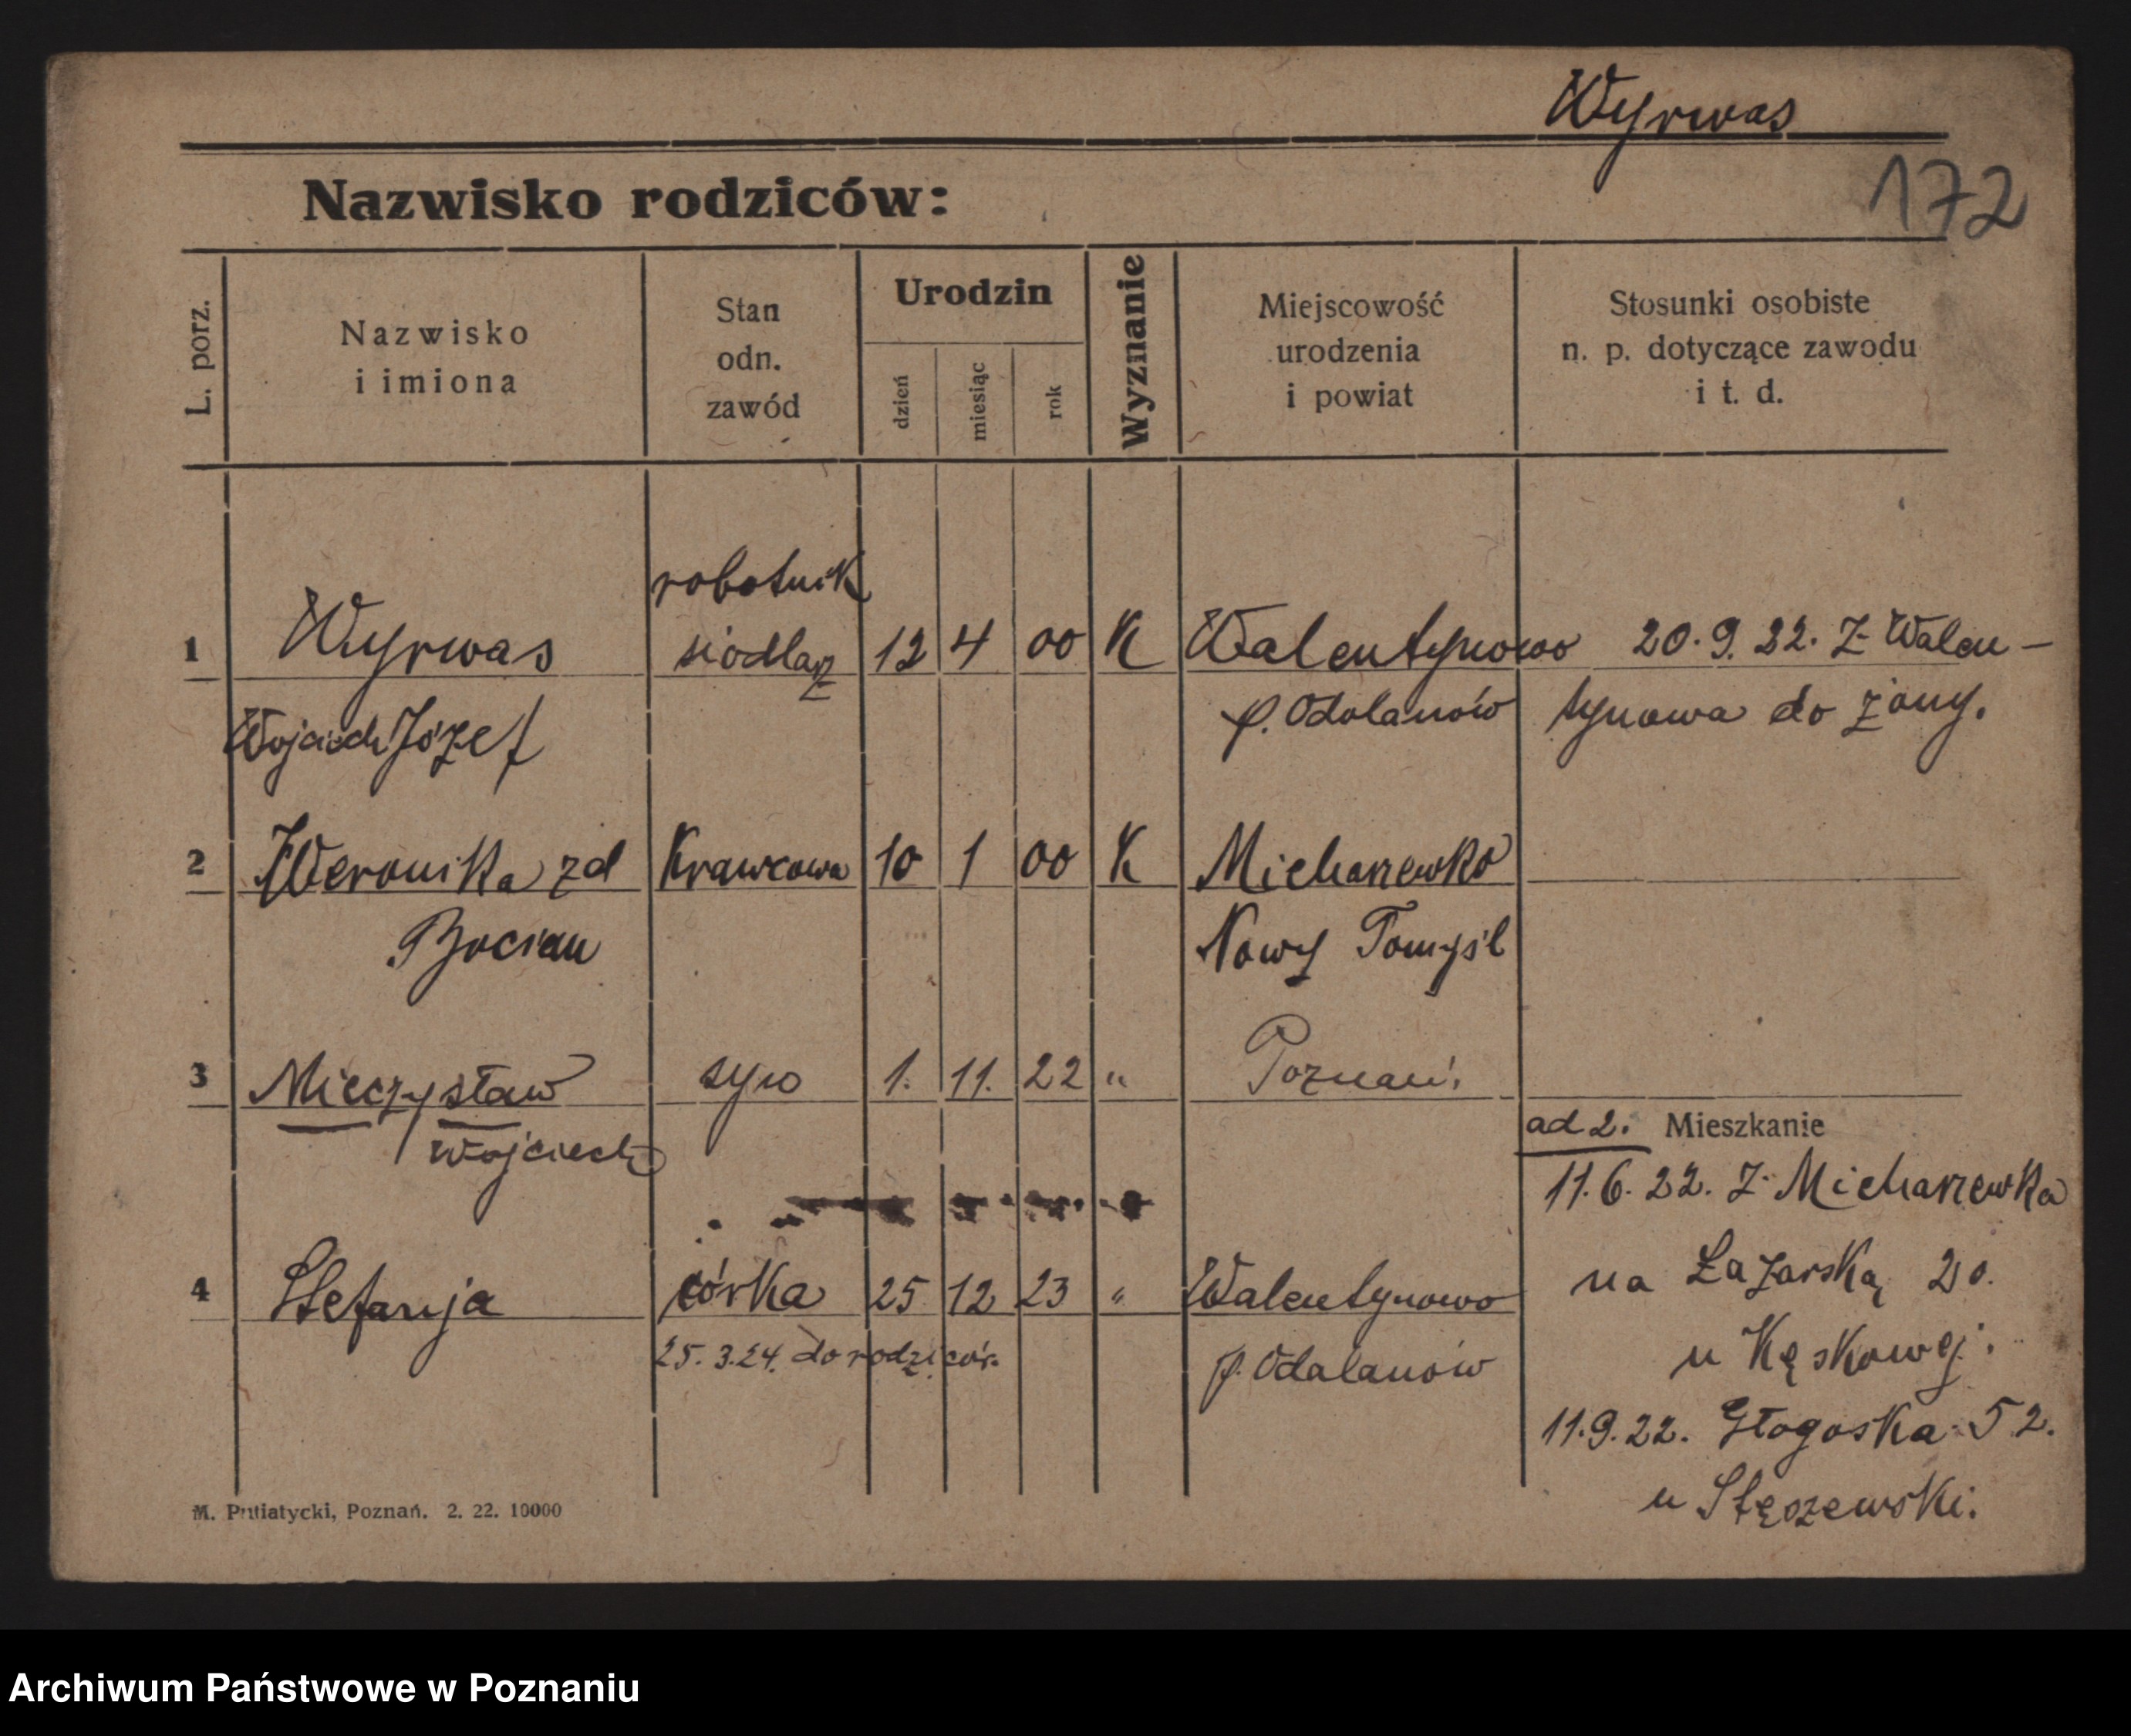 Wyrwas
172
Nazwisko rodziców:
L. porz.
Nazwisko
i imiona
Stan
odn.
zawód
Urodzin
dzień
miesiąc
rok
Wyznanie
Miejscowość
urodzenia
i powiat
Stosunki osobiste
n. p. dotyczące zawodu
i t. d.
robotnik
1 Wyrwas siodlarz 12 4 00 K Walentynowo 20.9.22. Z Walen-
Wojciech Józef p. Odolanów tynowa do żony.
2 Weronika zd Krawcowa 10 1 00 K Micharzewko
Bocian Nowy Tomyśl
3 Mieczysław syn 1. 11. 22 " Poznań.
Wojciech
ad 2. Mieszkanie
11.6.22. Z Micharzewka
na Łazarską 20.
u Kęskowej.
4 Stefanja córka 25 12 23 " Walentynowo
25.3.24. do rodziców. p. Odalanów
11.9.22. Głogoska 52.
u Stęszewski.
M. Putiatycki, Poznań. 2. 22. 10000
Archiwum Państwowe w Poznaniu